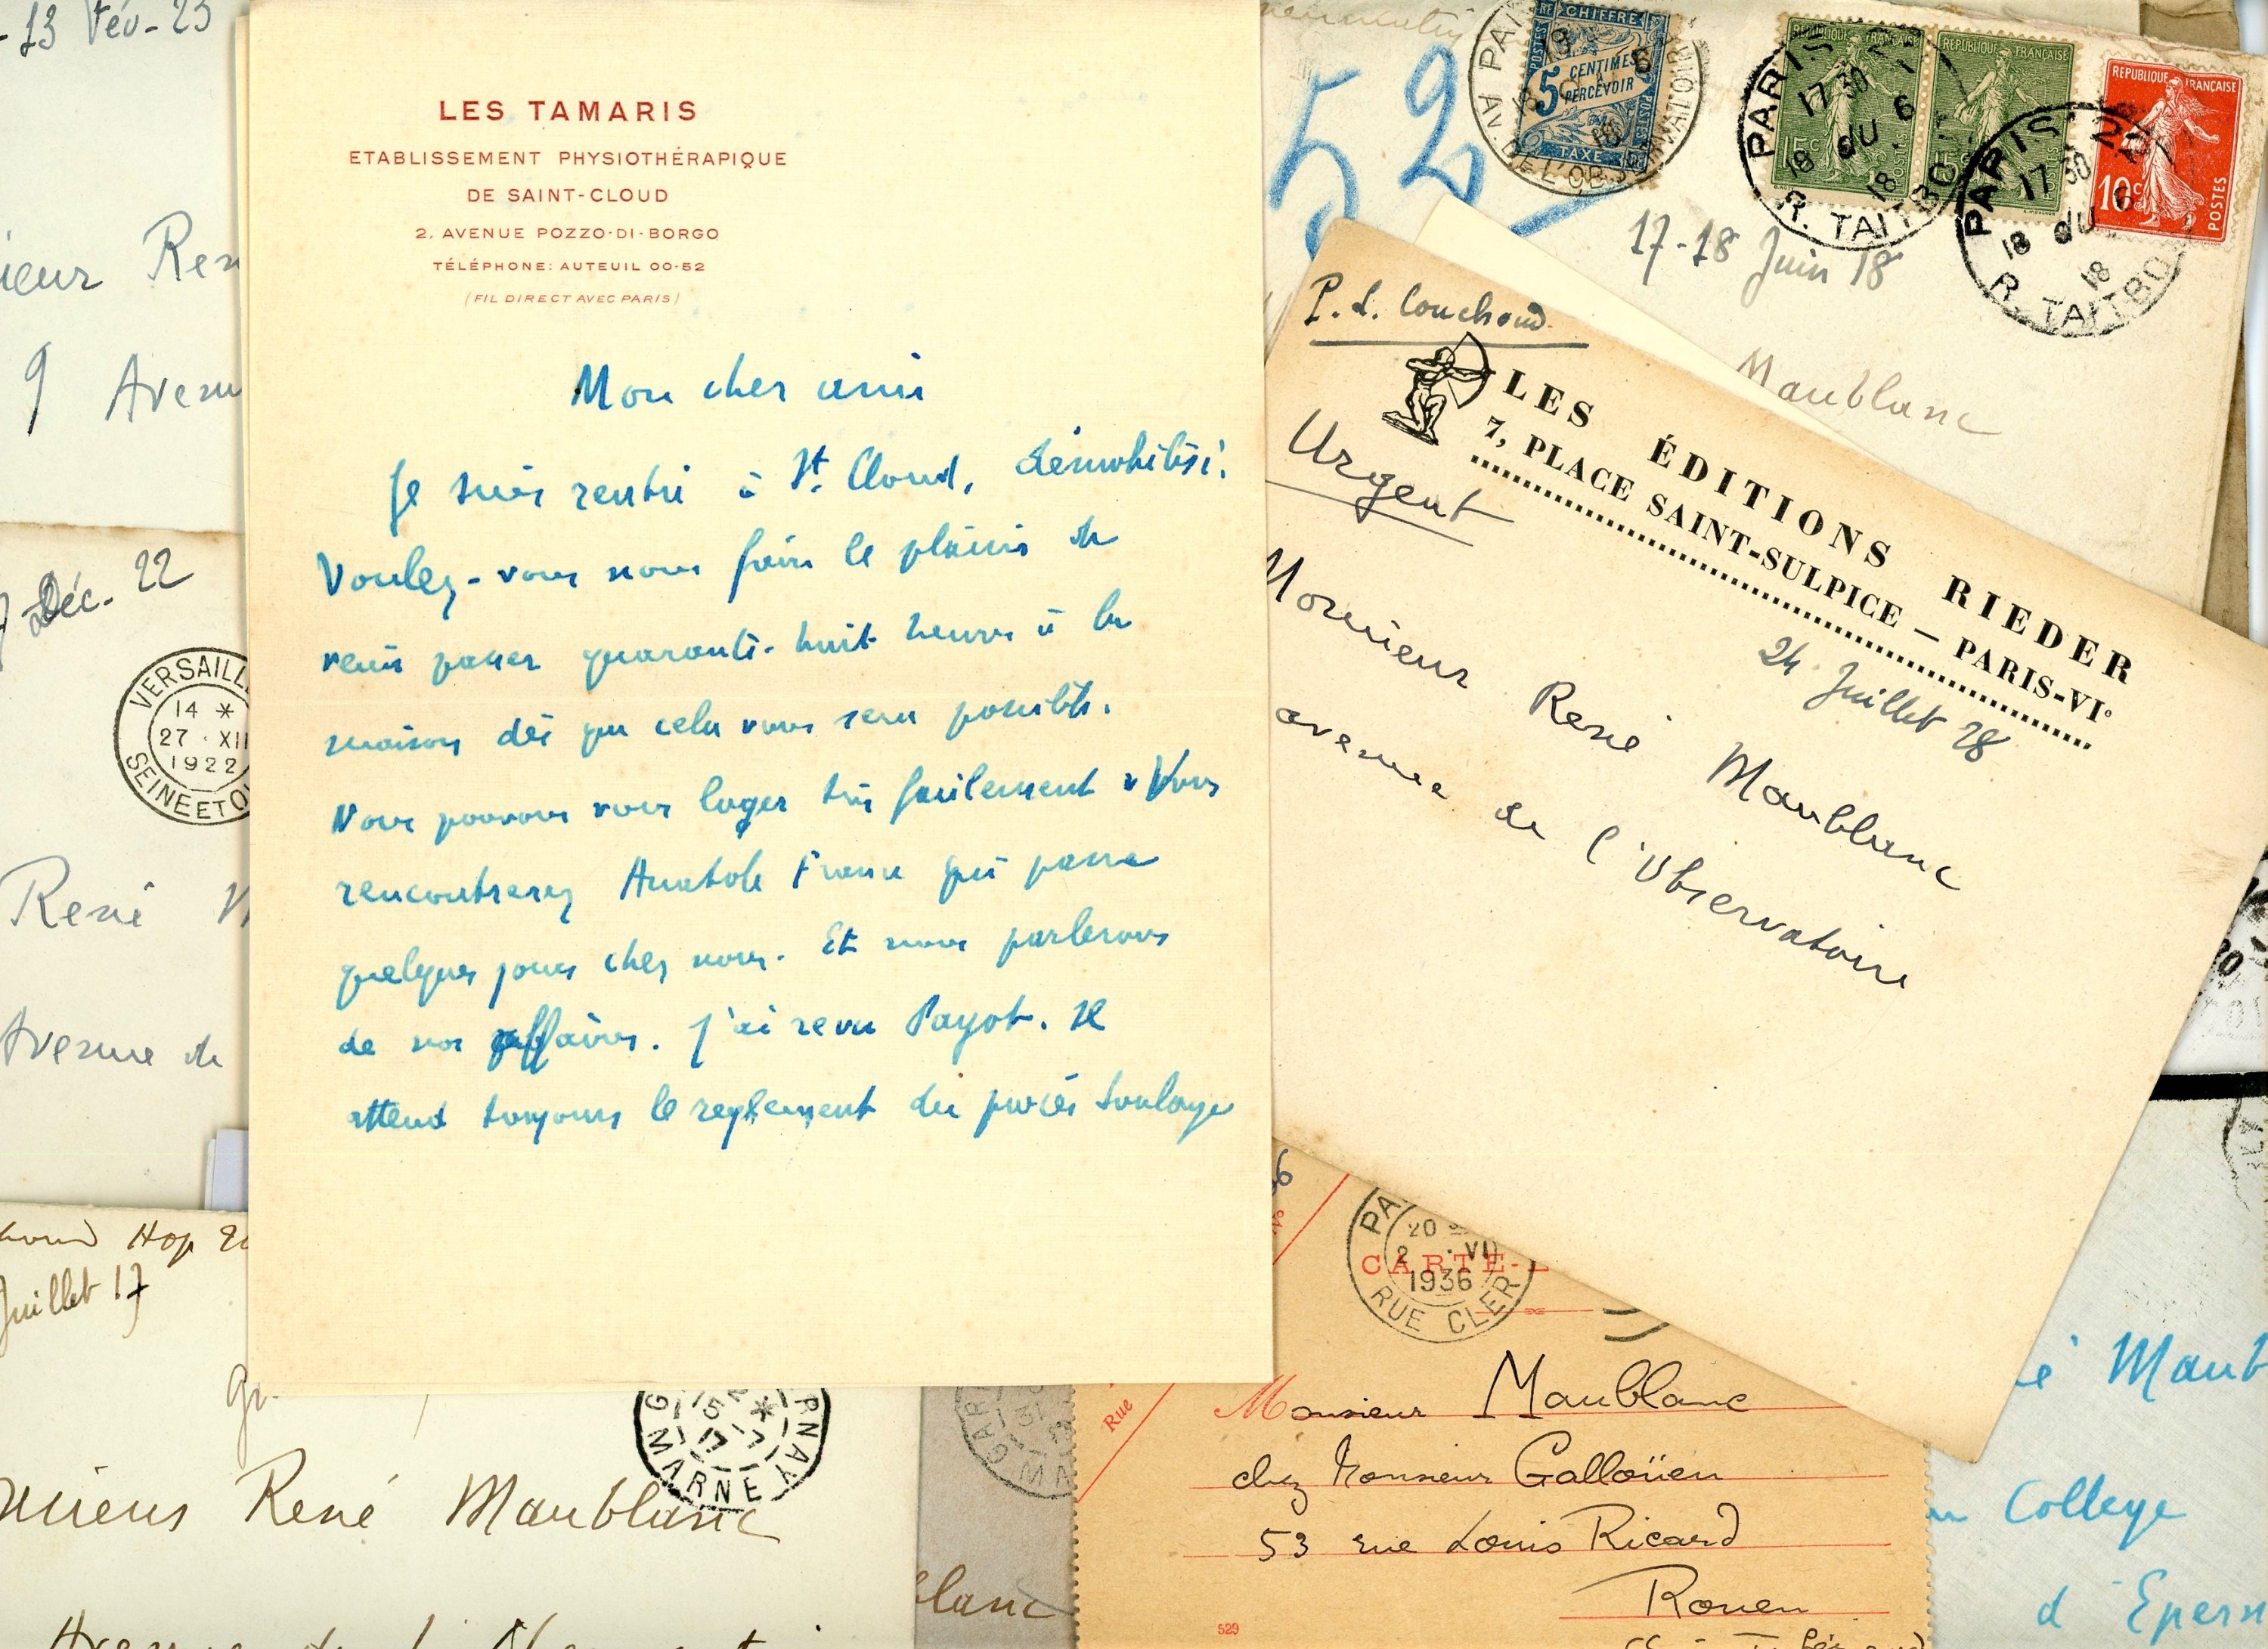 13 Fév- 23
ieur Ren
9 Aven
Déc. 22
VERSAILL
14 *
27 · XII
1922
SEINE ET O
René
Avenue de
Hop
Juillet 17
René Maublanc
15
17-7
MARNE
LES TAMARIS
ETABLISSEMENT PHYSIOTHÉRAPIQUE
DE SAINT-CLOUD
2, AVENUE POZZO-DI-BORGO
TÉLÉPHONE: AUTEUIL 00-52
(FIL DIRECT AVEC PARIS)
Mon cher ami
Je suis rentré à St. Cloud, démobilisé.
Voulez-vous nous faire le plaisir de
venir passer quarante-huit heures à la
maison dès que cela vous sera possible.
Nous pouvons vous loger très facilement. Vous
rencontrerez Anatole France qui passe
quelques jours chez nous. Et nous parlerons
de nos affaires. J'ai revu Payot. Il
attend toujours le reglement du procès Soulange
52
CHIFFRE
5 CENTIMES
À PERCEVOIR
POSTES
TAXE
AV. DE L'OBSERVATOIRE
REPUBLIQUE FRANÇAISE
15c
POSTES
REPUBLIQUE FRANÇAISE
15c
REPUBLIQUE FRANÇAISE
10c
POSTES
PARIS
17 30
18
R. TAITBO
PARIS
17 30
18
R. TAITBO
17-18 Juin 18
Maublanc
P. L. Couchoud
LES ÉDITIONS RIEDER
7, PLACE SAINT-SULPICE — PARIS-VIe
Urgent
24 Juillet 28
Monsieur René Maublanc
avenue de l'Observatoire
CARTE-L
PA
20
2 · VI
1936
RUE CLER
Rue
Monsieur Maublanc
chez Monsieur Gallouën
53 rue Louis Ricard
Rouen
529
lanc
é Maub
College
d'Epern